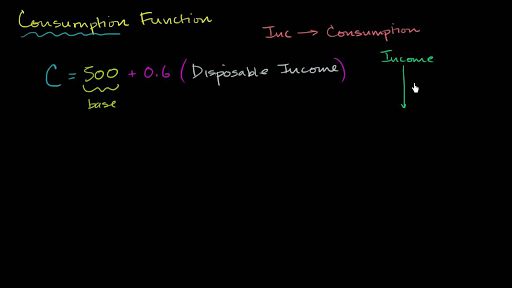 Consumption Function
Inc → Consumption
C = 500 + 0.6 (Disposable Income)
base
Income